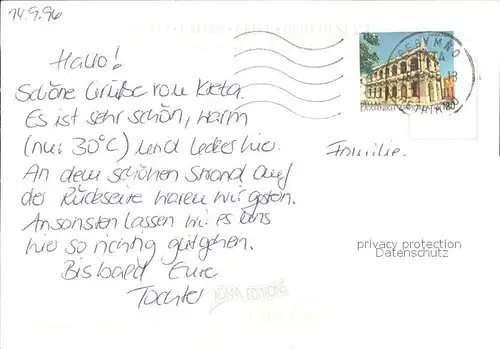 14.9.96
Hallo!
Schöne Grüße von Kreta.
Es ist sehr schön, warm
(nur 30°C) und lecker hier.
An dem schönen Strand auf
der Rückseite waren wir gestern.
Ansonsten lassen wir es uns
hier so richtig gutgehen.
Bis bald Eure
Tochter
Familie
privacy protection
Datenschutz
ADAM EDITIONS